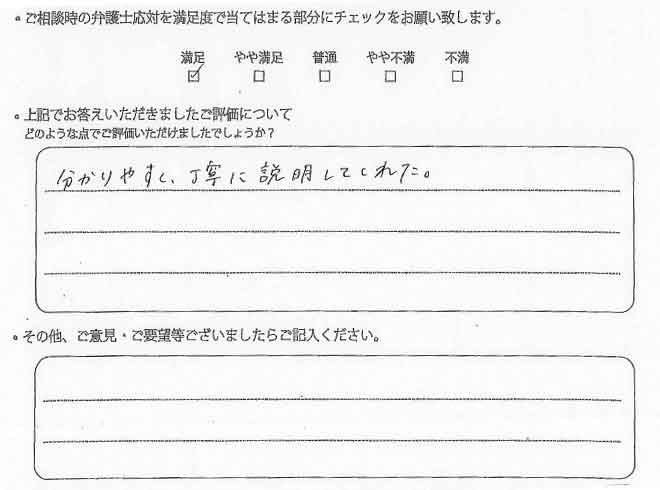 。ご相談時の弁護士応対を満足度で当てはまる部分にチェックをお願い致します。
満足 やや満足 普通 やや不満 不満
☑ □ □ □ □
。上記でお答えいただきましたご評価について
どのような点でご評価いただけましたでしょうか？
分かりやすく、丁寧に説明してくれた。
。その他、ご意見・ご要望等ございましたらご記入ください。